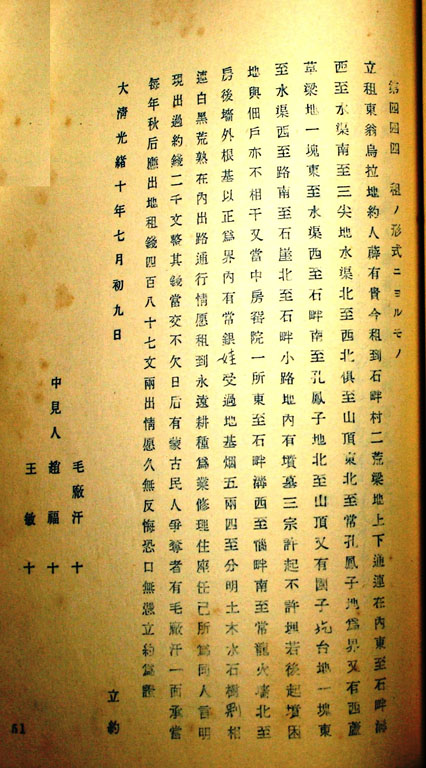 第四四四 租ノ形式ニヨルモノ
立租東翁烏拉地約人薛有貴今租到石畔村二荒梁地上下通連在內東至石畔溝
西至水渠南至三尖地水渠北至西北俱至山頂東北至常孔鳳子地為界又有西蘆
草梁地一塊東至水渠西至石畔南至孔鳳子地北至山頂又有園子圪台地一塊東
至水渠西至路南至石崖北至石畔小路地內有墳墓三宗許起不許埋若後起墳因
地與佃戶亦不相干又當中房窰院一所東至石畔溝西至偹畔南至常龍火墻北至
房後墻外根基以正為界內有常銀娃受過地基烟五兩四至分明土木水石樹割相
連白黑荒熟在內出路通行情愿租到永遠耕種為業修理住座任己所為同人言明
現出過約錢二千文整其錢當交不欠日后有蒙古民人爭奪者有毛廠汗一面承當
每年秋后應出地租錢四百八十七文兩出情愿久無反悔恐口無憑立約為證
大清光緒十年七月初九日
立約
毛廠汗 十
中見人 趙福 十
王敏 十
51